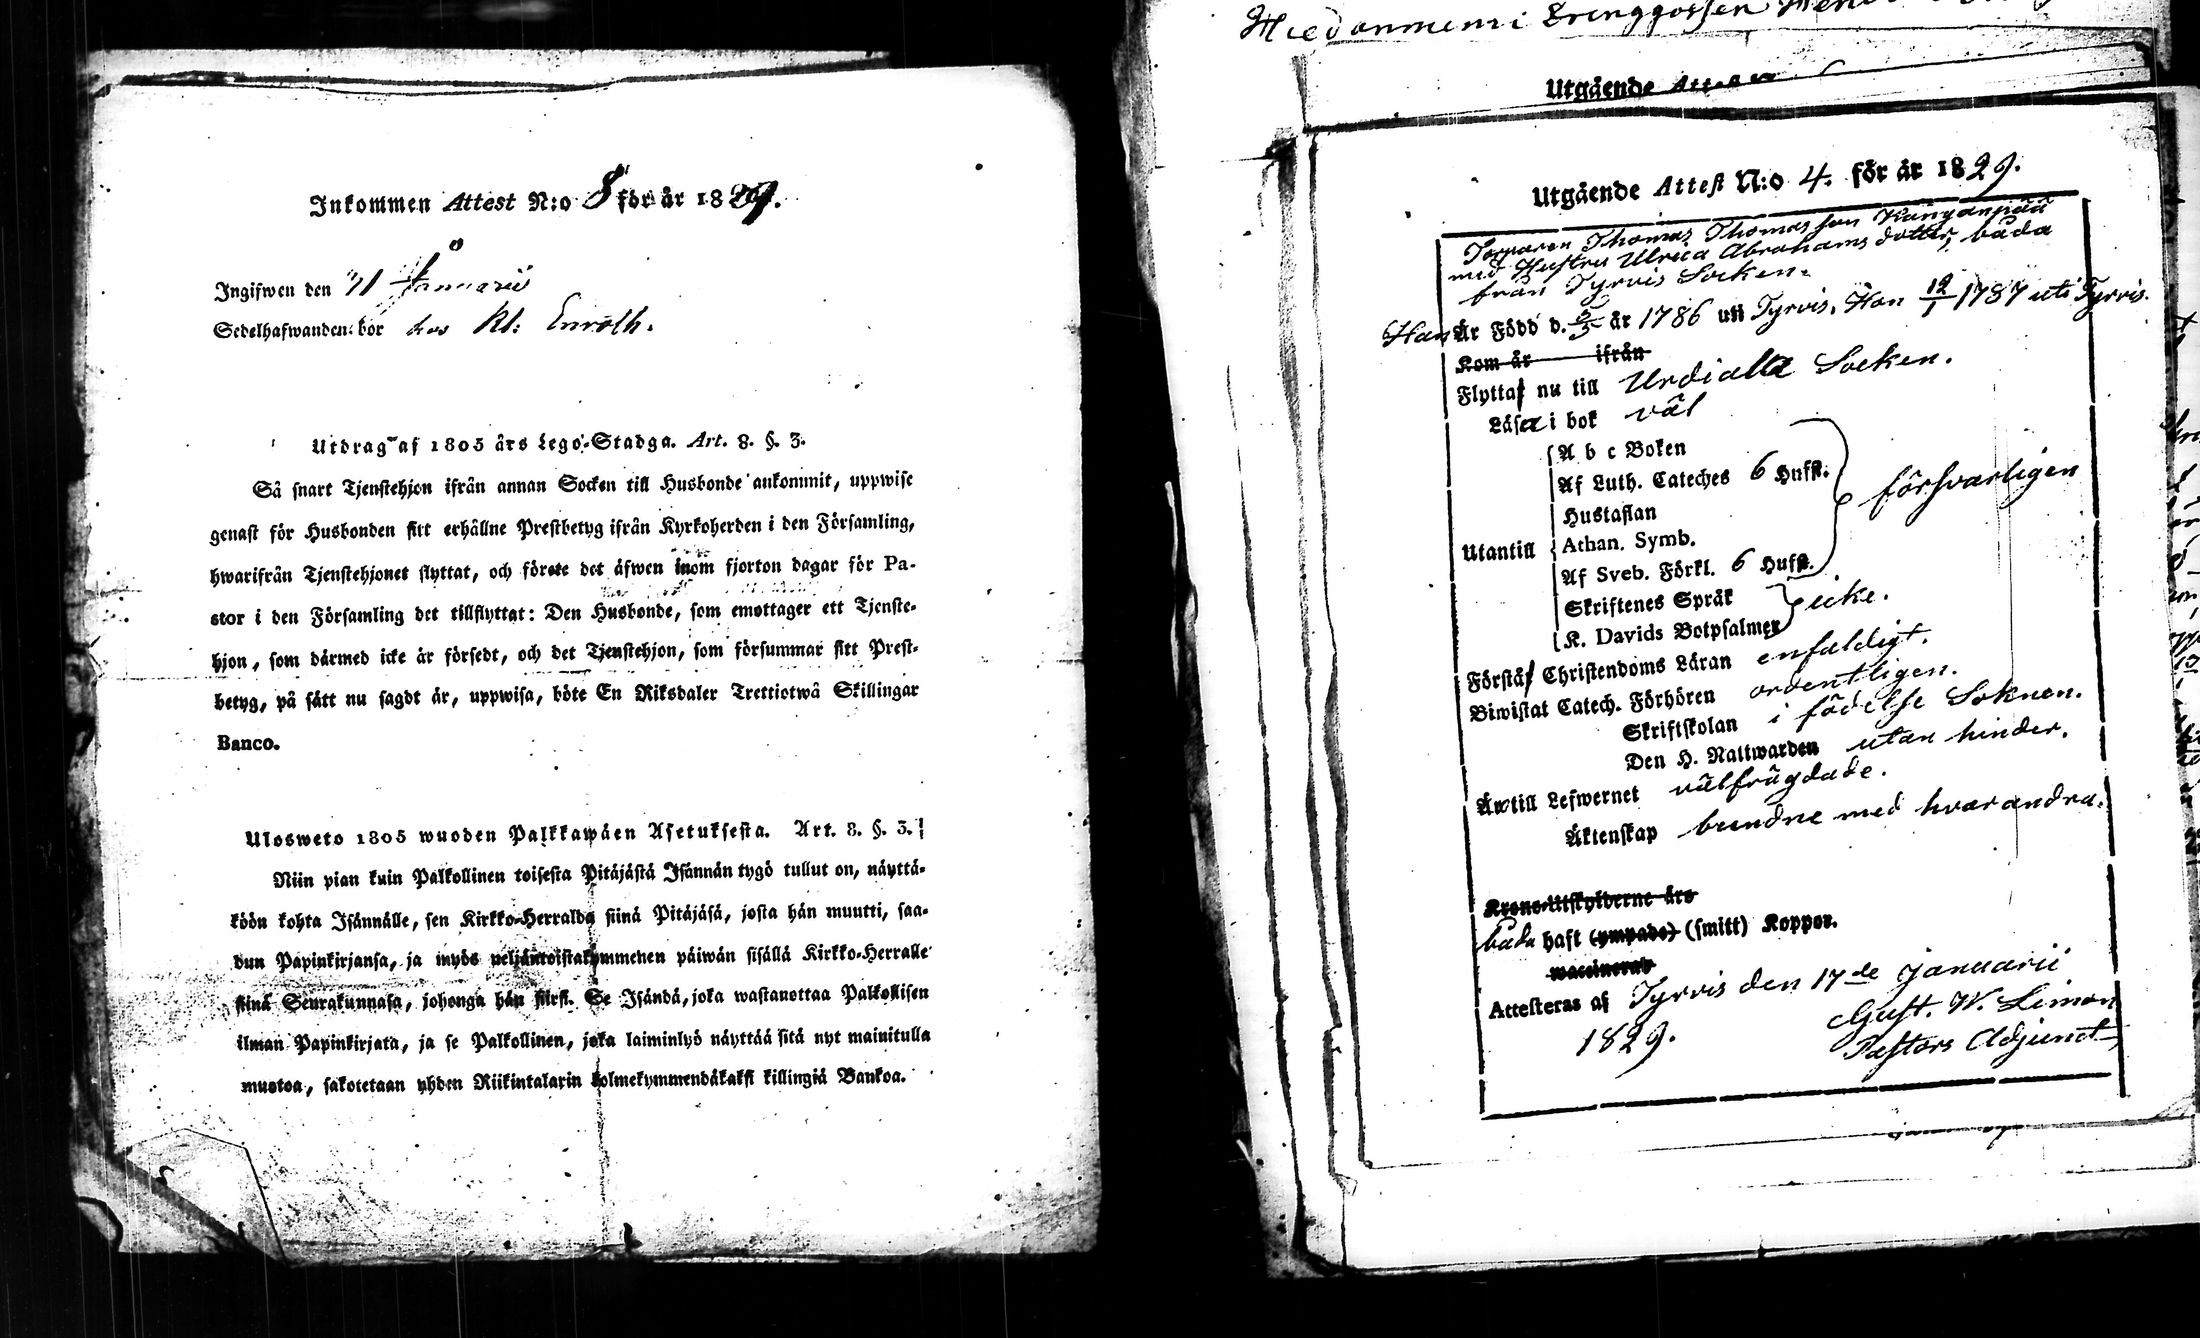 Inkommen Attest N:o 8 för år 1829.
Ingifwen den 31 Januarii
Sedelhafwanden: bor hos Kl: Enroth.
Utdrag af 1805 års Lego-Stadga. Art. 8. §. 3.
Så snart Tjenstehjon ifrån annan Socken till Husbonde ankommit, uppwise
genast för Husbonden sitt erhållne Prestbetyg ifrån Kyrkoherden i den Församling,
hwarifrån Tjenstehjonet flyttat, och förete det äfwen inom fjorton dagar för Pa-
stor i den Församling det tillflyttat: Den Husbonde, som emottager ett Tjenste-
hjon, som därmed icke är försedt, och det Tjenstehjon, som försummar sitt Prest-
betyg, på sätt nu sagdt är, uppwisa, böte En Riksdaler Trettiotwå Skillingar
Banco.
Ulosweto 1805 wuoden Palkkawäen Asetuksesta. Art. 8. §. 3.
Niin pian kuin Palkollinen toisesta Pitäjästä Isännän tygö tullut on, näyttä-
köön kohta Isännälle, sen Kirkko-Herralda siinä Pitäjäsä, josta hän muutti, saa-
dun Papinkirjansa, ja myös neljäntoistakymmenen päiwän sisällä Kirkko-Herralle
siinä Seurakunnasa, johonga hän siirsi. Se Isändä, joka wastanottaa Palkollisen
ilman Papinkirjata, ja se Palkollinen, joka laiminlyö näyttää sitä nyt mainitulla
muotoa, sakotetaan yhden Riikintalarin kolmekymmendäkaksi killingiä Bankoa.
Utgående Attest
Utgående Attest N:o 4. för år 1829.
Thomas Thomasson Kanganpää
med Hustru Ulrica Abrahams dotter, båda
från Tyrvis Socken.
Han Är Född d. 5/5 år 1786 uti Tyrvis, Hon 12/1 1787 uti Tyrvis.
Kom år ifrån
Flytta nu till Urdiala Socken.
Läsa i bok väl
A b c Boken
Af Luth. Cateches 6 Hufst.
Hustaflan
försvarligen
Utantill
Athan. Symb.
Af Sveb. Förkl. 6 Hufst.
Skriftenes Språk
icke.
K. Davids Botpsalmer
Förstå Christendoms Läran enfaldigt.
Biwistat Catech. Förhören ordentligen.
Skriftskolan i födelse Soknen.
Den H. Nattwarden utan hinder.
Äro till Lefwernet välfrägdade.
Äktenskap bundne med hvarandra.
Krono-Utskylderne äro
båda haft (ympade) (smitt) Koppor.
waccinerad
Attesteras af Tyrvis den 17de Januarii
1829. Gust. W. Liman
Pastors Adjunct